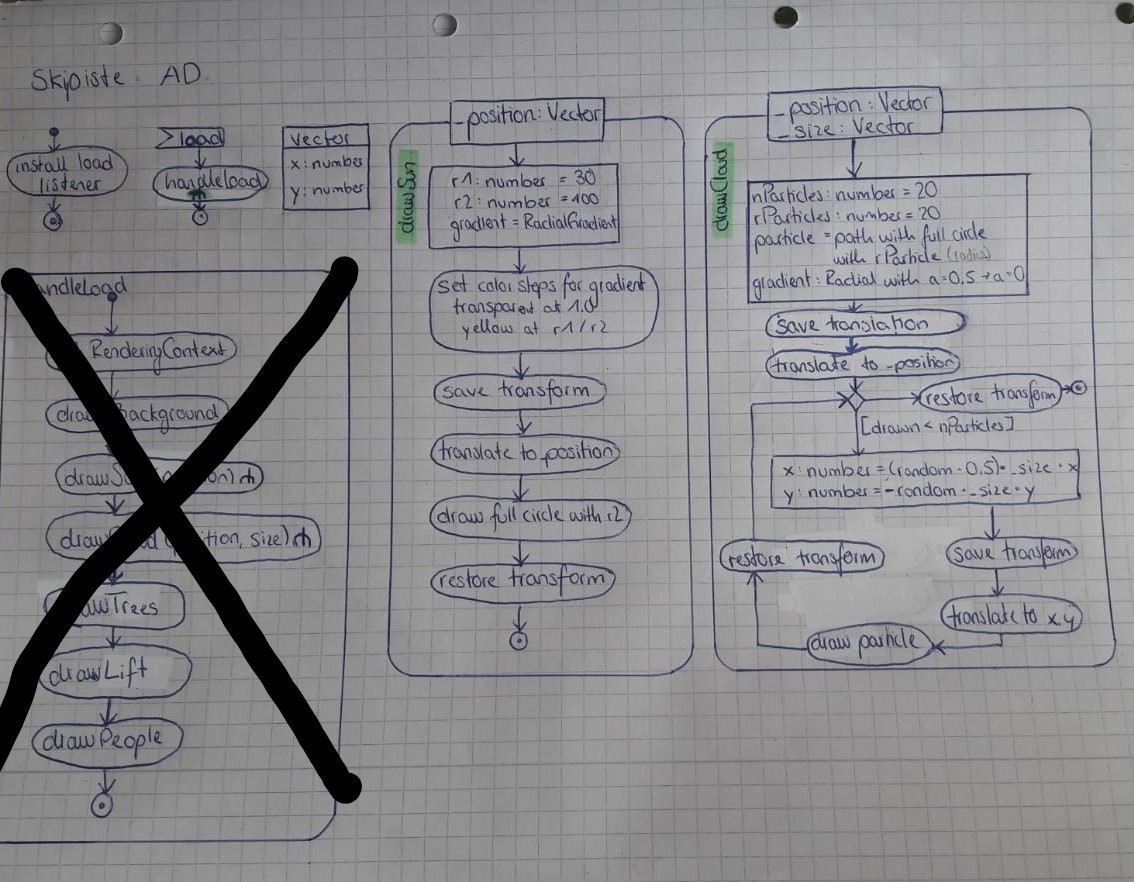 Skipiste AD
install load
listener
load
handleload
Vector
x: number
y: number
RenderingContext
drawTrees
drawLift
drawPeople
drawSun
_position: Vector
r1: number = 30
r2: number = 100
gradient = RadialGradient
set color steps for gradient
transparent at 1.0
yellow at r1/r2
save transform
translate to _position
draw full circle with r2
restore transform
drawCloud
_position: Vector
_size: Vector
nParticles: number = 20
rParticles: number = 20
particle = path with full circle
with rParticle (radius)
gradient: Radial with a=0,5 → a=0
save translation
translate to _position
restore transform
[drawn < nParticles]
x: number = (random - 0,5) · _size · x
y: number = -random · _size · y
save transform
translate to x,y
draw particle
restore transform